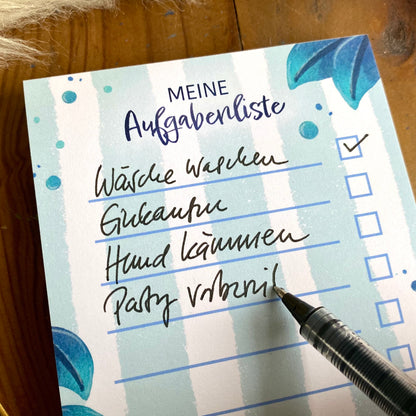 MEINE
Aufgabenliste
Wäsche waschen
Einkaufen
Hund kämmen
Party